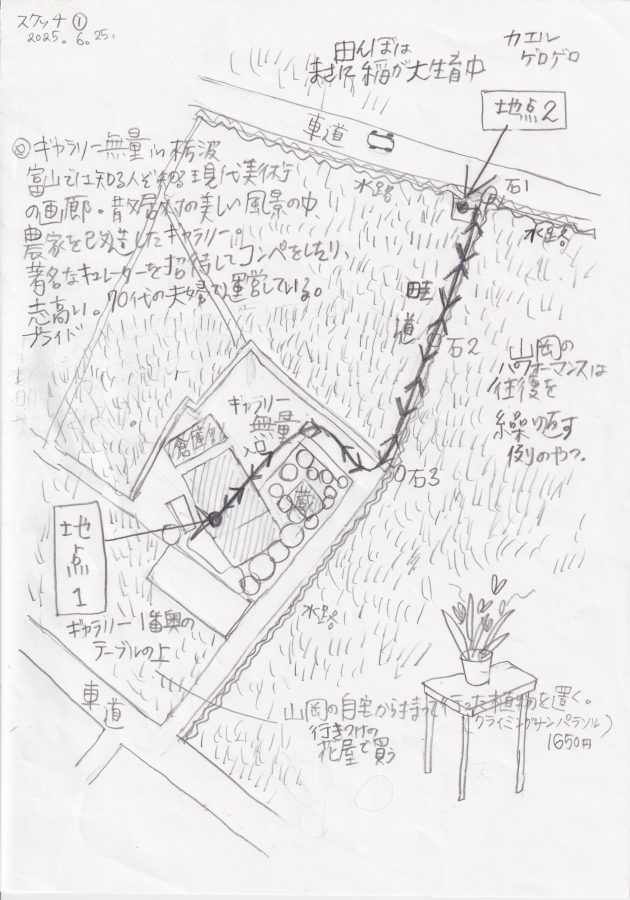 スケッチ①
2025.6.25.
田んぼは
まさに稲が大生育中
カエル
ゲロゲロ
地点2
車道
◎ギャラリー無量 in 砺波
富山では知る人ぞ知る現代美術
の画廊。散居村の美しい風景の中、
農家を改造したギャラリー。
著名なキュレーターを招待してコンペをしたり、
志高い。70代の夫婦で運営している。
プライド
水路
石1
水路
畦道
石2
山岡の
パフォーマンスは
往復を
繰り返す
例のやつ。
ギャラリー
無量
入口
倉庫
蔵
石3
地点1
ギャラリー1番奥の
テーブルの上
水路
車道
山岡の自宅から持って行った植物を置く。
(クライミングサンパラソル)
行きつけの
花屋で買う
1650円